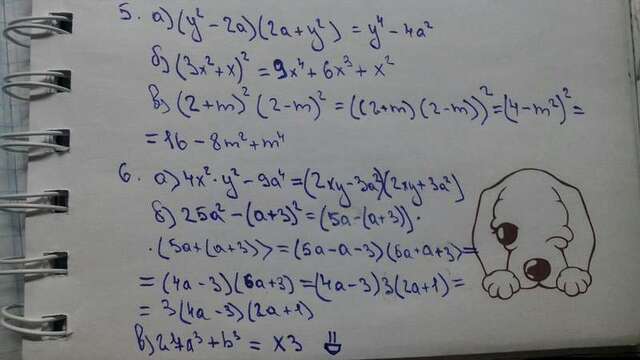 5. а) (y² - 2a)(2a + y²) = y⁴ - 4a²
б) (3x² + x)² = 9x⁴ + 6x³ + x²
в) (2+m)² (2-m)² = ((2+m)(2-m))² = (4-m²)² =
= 16 - 8m² + m⁴
6. а) 4x²·y² - 9a⁴ = (2xy - 3a²)(2xy + 3a²)
б) 25a² - (a+3)² = (5a - (a+3))·
·(5a + (a+3)) = (5a - a - 3)(5a + a + 3) =
= (4a - 3)(6a + 3) = (4a - 3)3(2a + 1) =
= 3(4a - 3)(2a + 1)
в) 27a³ + b³ = х3